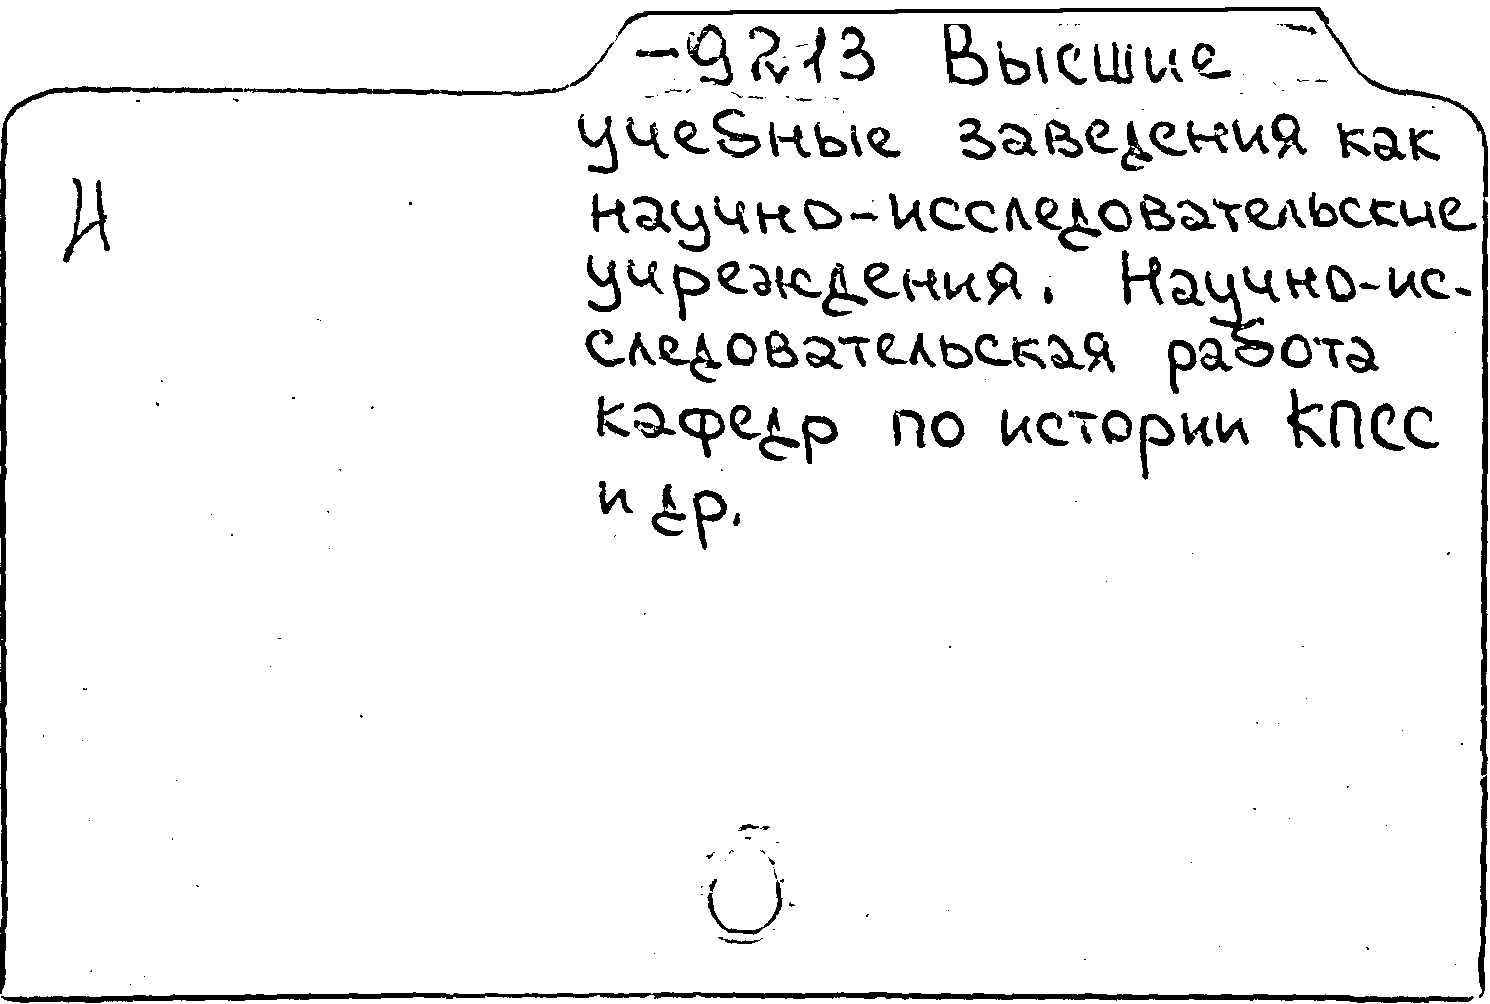 -9213 Высшие
учебные заведения как
И
научно-исследовательские
учреждения. Научно-ис-
следовательская работа
кафедр по истории КПСС
и др.